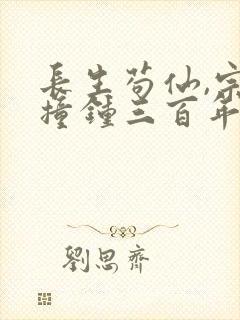 長生茍仙,宗
撞鐘三百年
劉思齊